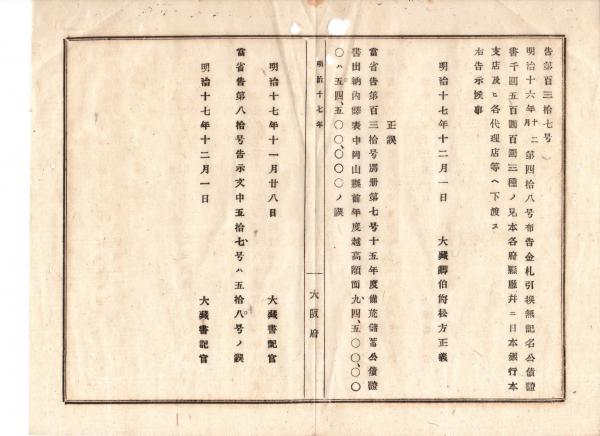 告第百三拾七号
明治十六年十二月第四拾八号布告金札引換無記名公債證
書千圓五百圓百圓三種ノ見本各府縣廳并ニ日本銀行本
支店及ヒ各代理店等ヘ下渡ス
右告示候事
明治十七年十二月一日
大藏卿伯爵松方正義
正誤
當省告第百三拾号別册第七号十五年度備荒儲蓄公債證
書出納內譯表中岡山縣前年度越高額面九、四、五〇〇、〇〇
〇ハ五四、五〇〇、〇〇〇ノ誤
明治十七年
大阪府
明治十七年十一月廿八日
大藏書記官
當省告第八拾号告示文中五拾七号ハ五拾八号ノ誤
明治十七年十二月一日
大藏書記官